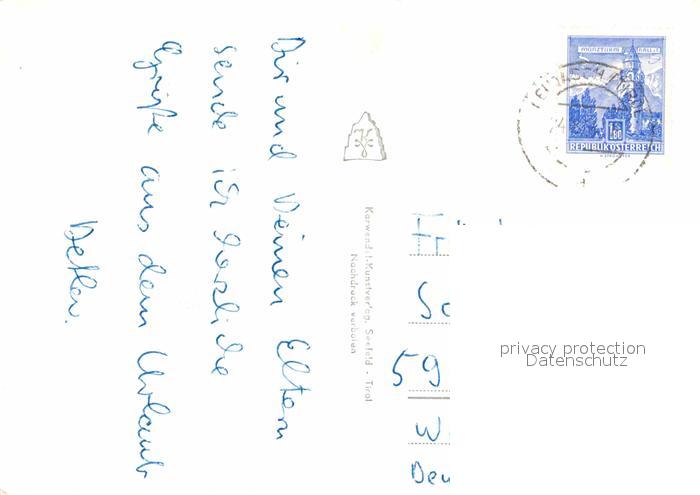 Dir und Deinen Eltern
sende ich herzliche
Grüße aus dem Urlaub
Detlev.
Karwendel-Kunstverlag, Seefeld - Tirol
Nachdruck verboten
MÜNZTURM HALL i. T.
S
1.80
REPUBLIK ÖSTERREICH
59
privacy protection
Datenschutz